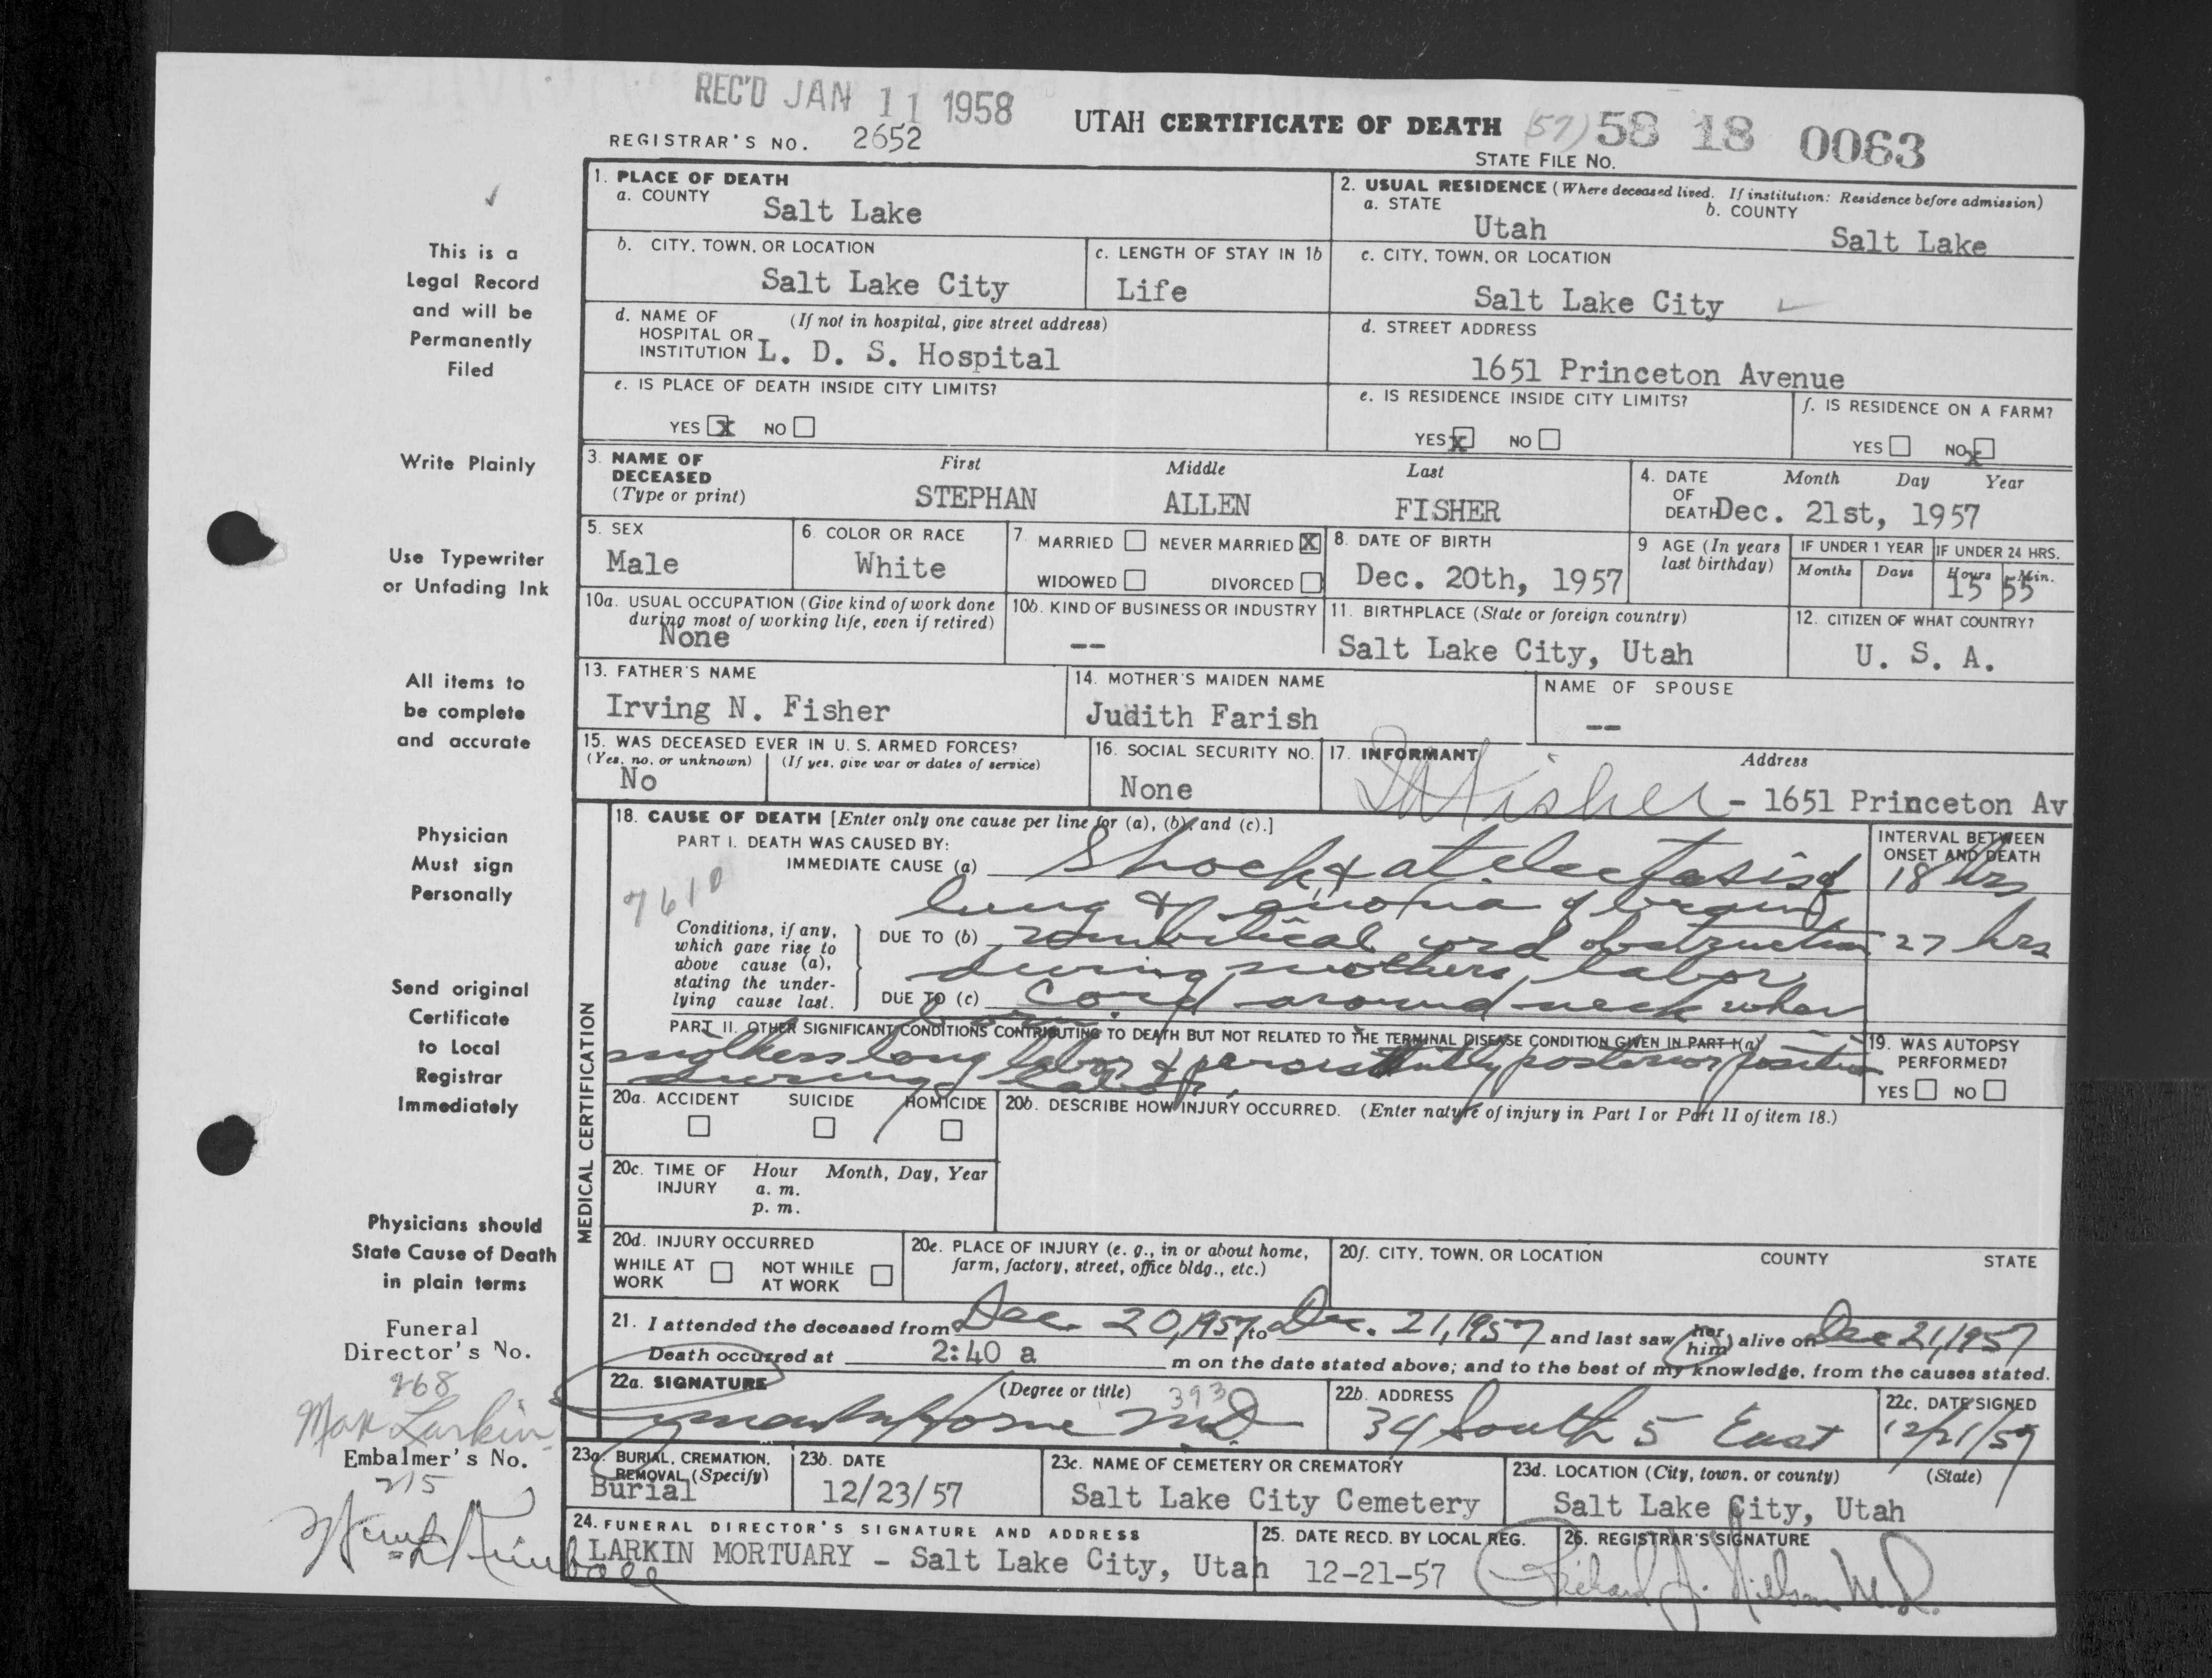 REC'D JAN 11 1958
UTAH CERTIFICATE OF DEATH (57) 58 18 0063
REGISTRAR'S NO. 2652
STATE FILE NO.
This is a
Legal Record
and will be
Permanently
Filed
Write Plainly
Use Typewriter
or Unfading Ink
All items to
be complete
and accurate
Physician
Must sign
Personally
Send original
Certificate
to Local
Registrar
Immediately
Physicians should
State Cause of Death
in plain terms
Funeral
Director's No.
268
Max Larkin
Embalmer's No.
215
Kimball
1. PLACE OF DEATH
a. COUNTY
Salt Lake
2. USUAL RESIDENCE (Where deceased lived. If institution: Residence before admission)
a. STATE
Utah
b. COUNTY
Salt Lake
b. CITY, TOWN, OR LOCATION
Salt Lake City
c. LENGTH OF STAY IN 1b
Life
c. CITY, TOWN, OR LOCATION
Salt Lake City
d. NAME OF HOSPITAL OR INSTITUTION
(If not in hospital, give street address)
L. D. S. Hospital
d. STREET ADDRESS
1651 Princeton Avenue
e. IS PLACE OF DEATH INSIDE CITY LIMITS?
YES X NO
e. IS RESIDENCE INSIDE CITY LIMITS?
YES X NO
f. IS RESIDENCE ON A FARM?
YES NO X
3. NAME OF DECEASED
(Type or print)
First Middle Last
STEPHAN ALLEN FISHER
4. DATE OF DEATH
Month Day Year
Dec. 21st, 1957
5. SEX
Male
6. COLOR OR RACE
White
7. MARRIED NEVER MARRIED X
WIDOWED DIVORCED
8. DATE OF BIRTH
Dec. 20th, 1957
9 AGE (In years last birthday)
IF UNDER 1 YEAR
Months Days
IF UNDER 24 HRS.
Hours Min.
15 55
10a. USUAL OCCUPATION (Give kind of work done during most of working life, even if retired)
None
10b. KIND OF BUSINESS OR INDUSTRY
--
11. BIRTHPLACE (State or foreign country)
Salt Lake City, Utah
12. CITIZEN OF WHAT COUNTRY?
U. S. A.
13. FATHER'S NAME
Irving N. Fisher
14. MOTHER'S MAIDEN NAME
Judith Farish
NAME OF SPOUSE
--
15. WAS DECEASED EVER IN U. S. ARMED FORCES?
(Yes, no, or unknown) (If yes, give war or dates of service)
No
16. SOCIAL SECURITY NO.
None
17. INFORMANT Address
Fisher - 1651 Princeton Av
MEDICAL CERTIFICATION
18. CAUSE OF DEATH [Enter only one cause per line for (a), (b), and (c).]
INTERVAL BETWEEN ONSET AND DEATH
PART I. DEATH WAS CAUSED BY:
IMMEDIATE CAUSE (a) Shock & atelectasis of 18 hrs
7610
lung & anoxia of brain
Conditions, if any, which gave rise to above cause (a), stating the underlying cause last.
DUE TO (b) umbilical cord obstruction 27 hrs
during mothers labor
DUE TO (c) cord around neck when
born.
PART II. OTHER SIGNIFICANT CONDITIONS CONTRIBUTING TO DEATH BUT NOT RELATED TO THE TERMINAL DISEASE CONDITION GIVEN IN PART I(a)
mothers long labor & persistently posterior position
during labor.
19. WAS AUTOPSY PERFORMED?
YES NO
20a. ACCIDENT SUICIDE HOMICIDE
20b. DESCRIBE HOW INJURY OCCURRED. (Enter nature of injury in Part I or Part II of item 18.)
20c. TIME OF INJURY
Hour Month, Day, Year
a. m.
p. m.
20d. INJURY OCCURRED
WHILE AT WORK NOT WHILE AT WORK
20e. PLACE OF INJURY (e. g., in or about home, farm, factory, street, office bldg., etc.)
20f. CITY, TOWN, OR LOCATION COUNTY STATE
21. I attended the deceased from Dec. 20, 1957, to Dec. 21, 1957 and last saw her him alive on Dec 21, 1957
Death occurred at 2:40 a m on the date stated above; and to the best of my knowledge, from the causes stated.
22a. SIGNATURE (Degree or title) 393
Horne MD.
22b. ADDRESS
34 South 5 East
22c. DATE SIGNED
12/21/57
23a. BURIAL, CREMATION, REMOVAL (Specify)
Burial
23b. DATE
12/23/57
23c. NAME OF CEMETERY OR CREMATORY
Salt Lake City Cemetery
23d. LOCATION (City, town, or county) (State)
Salt Lake City, Utah
24. FUNERAL DIRECTOR'S SIGNATURE AND ADDRESS
LARKIN MORTUARY - Salt Lake City, Utah
25. DATE RECD. BY LOCAL REG.
12-21-57
26. REGISTRAR'S SIGNATURE
Richard J. Nielson M.D.